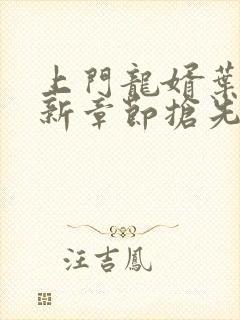 上門龍婿葉
新章節搶先
汪吉鳳